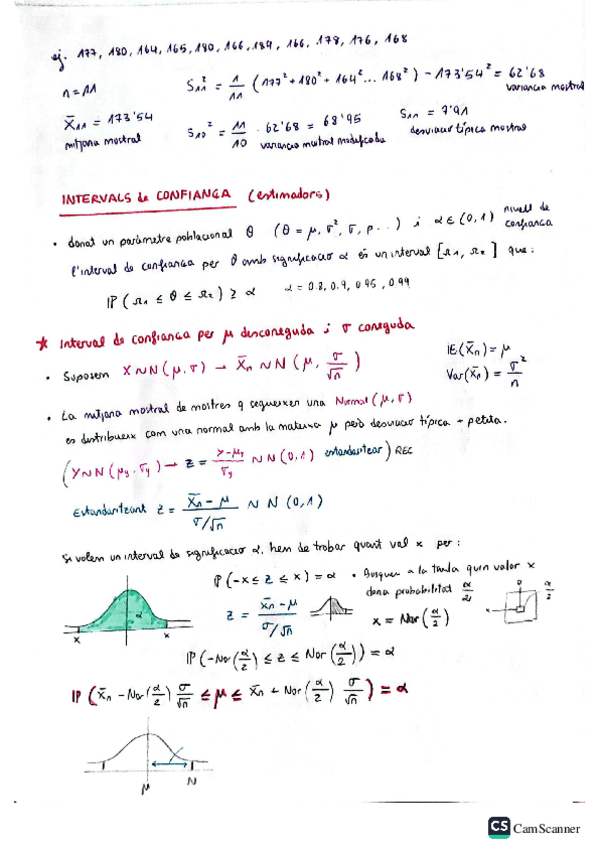 ej. 177, 180, 164, 165, 190, 166, 184, 166, 178, 176, 168
n = 11   S₁₁² = 1/11 (177² + 180² + 164² ... 168²) - 173'54² = 62'68
variancia mostral
X̄₁₁ = 173'54   S₁₀² = 11/10 · 62'68 = 68'95   S₁₁ = 7'91
mitjana mostral   variancia mostral modificada   desviacio típica mostral
INTERVALS de CONFIANÇA (estimadors)
• donat un paràmetre poblacional θ (θ = μ, σ², σ, p...) i α ∈ (0,1) nivell de confiança
l'interval de confiança per θ amb significacio α és un interval [Ω₁, Ω₂] que:
IP (Ω₁ ≤ θ ≤ Ω₂) ≥ α   α = 0.8, 0.9, 0.95, 0.99
* Interval de confiança per μ desconeguda i σ coneguda
• Suposem X ~ N (μ, σ) → X̄n ~ N (μ, σ/√n)   IE(X̄n) = μ
Var(X̄n) = σ²/n
• La mitjana mostral de mostres q segueixen una Normal (μ, σ)
es distribueix com una normal amb la mateixa μ però desviacio típica + petita.
(Y ~ N (μy, σy) → Z = Y-μy/σy ~ N (0,1) estandaritzar) REC
Estandaritzant Z = X̄n - μ / σ/√n ~ N (0,1)
Si volem un interval de significacio α, hem de trobar quant val x per:
IP (-x ≤ Z ≤ x) = α   • Busquem a la taula quin valor x
dona probabilitat α/2
Z = X̄n - μ / σ/√n   x = Nor(α/2)
α
x x
IP (-Nor(α/2) ≤ Z ≤ Nor(α/2)) = α
IP (X̄n - Nor(α/2) σ/√n ≤ μ ≤ X̄n + Nor(α/2) σ/√n) = α
μ N
CS CamScanner